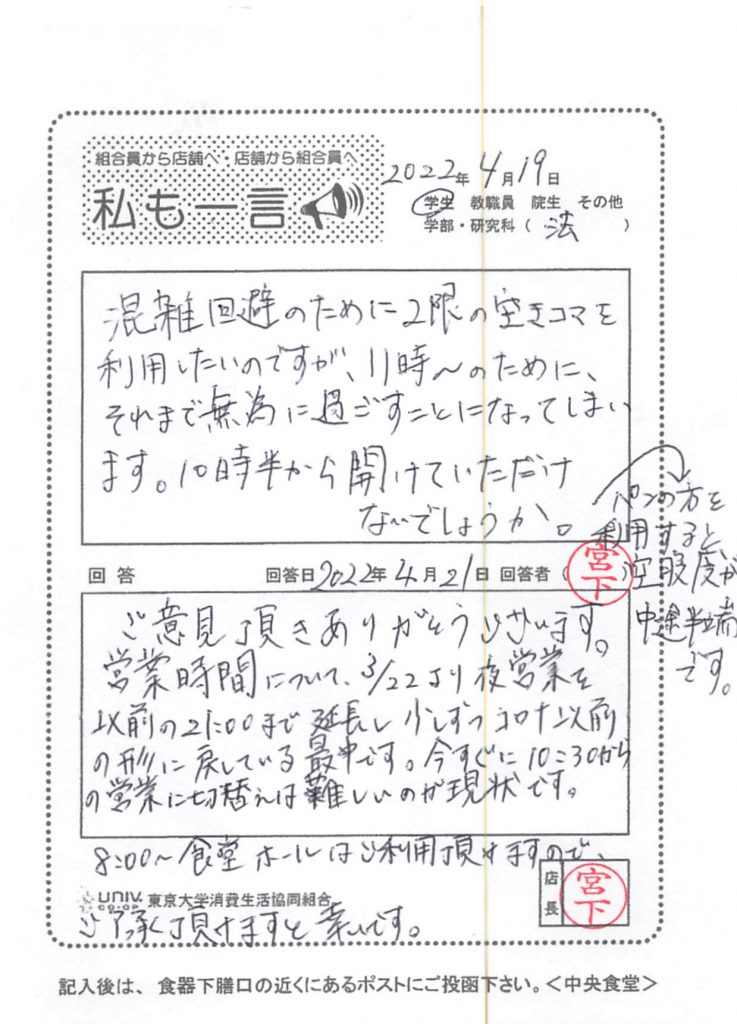 組合員から店舗へ・店舗から組合員へ
私も一言
2022年4月19日
学生 教職員 院生 その他
学部・研究科（ 法 ）
混雑回避のために2限の空きコマを
利用したいのですが、11時〜のために、
それまで無為に過ごすことになってしまい
ます。10時半から開けていただけ
ないでしょうか。
パンの方を
利用すると
空腹度が
中途半端
です。
回答 回答日2022年4月21日 回答者（宮下）
ご意見頂きありがとうございます。
営業時間について、3/22より夜営業を
以前の21:00まで延長し少しずつコロナ以前
の形に戻している最中です。今すぐに10:30から
の営業に切替えは難しいのが現状です。
8:00〜食堂ホールはご利用頂けますので、
UNIV. CO-OP 東京大学消費生活協同組合
ご了承頂けますと幸いです。
店長 宮下
記入後は、食器下膳口の近くにあるポストにご投函下さい。＜中央食堂＞